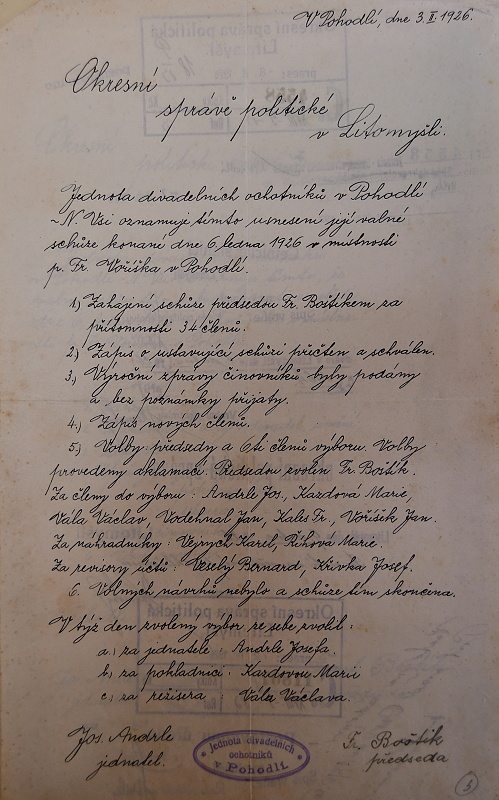 V Pohodlí, dne 3.II.1926.
Okresní
správě politické
v Litomyšli.
Jednota divadelních ochotníků v Pohodlí
~N. Vsi oznamuje tímto usnesení její valné
schůze konané dne 6. ledna 1926 v místnosti
p. Fr. Voříška v Pohodlí.
1.) Zahájení schůze předsedou Fr. Boštíkem za
přítomnosti 34 členů.
2.) Zápis o ustavující schůzi přečten a schválen.
3.) Výroční zprávy činovníků byly podány
a bez poznámky přijaty.
4.) Zápis nových členů.
5.) Volby předsedy a 6ti členů výboru. Volby
provedeny aklamací. Předsedou zvolen Fr. Boštík.
Za členy do výboru: Andrle Jos., Kazdová Marie,
Vála Václav, Vodehnal Jan, Kales Fr., Voříšek Jan.
Za náhradníky: Vejrych Karel, Říhová Marie.
Za revisory účtů: Veselý Bernard, Křivka Josef.
6. Volných návrhů nebylo a schůze tím skončena.
V týž den zvolený výbor ze sebe zvolil:
a.) za jednatele: Andrle Josefa.
b.) za pokladnici: Kazdovou Marii
c.) za režisera: Válu Václava.
Jos. Andrle
jednatel.
Jednota divadelních
ochotníků
v Pohodlí.
Fr. Boštík
předseda